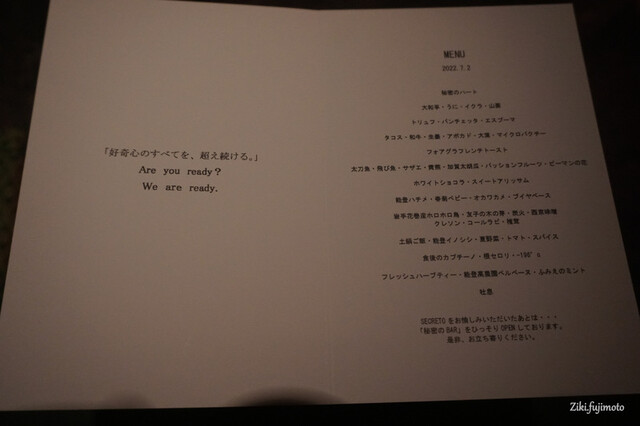 「好奇心のすべてを、超え続ける。」
Are you ready?
We are ready.
MENU
2022.7.2
秘密のハート
大和芋・うに・イクラ・山葵
トリュフ・パンチェッタ・エスプーマ
タコス・和牛・アボカド・大葉・マイクロパクチー
フォアグラフレンチトースト
太刀魚・飛び魚・サザエ・加賀太胡瓜・パッションフルーツ・ピーマンの花
ホワイトショコラ・スイートアリッサム
能登ハチメ・ベビー・オカワカメ・ブイヤベース
岩手花巻産ホロホロ鳥・木の芽・炭火・味噌
クレソン・コールラビ
土鍋ご飯・能登イノシシ・トマト・スパイス
食後のカプチーノ・セロリ・-196°c
フレッシュハーブティー・ベルベーヌ・ふみえのミント
吐息
SECRETO をお愉しみいただいたあとは・・・
「秘密の BAR」をひっそり OPEN しております。
是非、お立ち寄りください。
Ziki.fujimoto